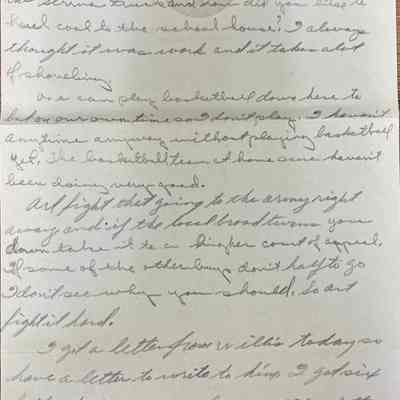 the
truck and how did you like to
haul coal to the school house? I always
thought it was work and it takes a lot
of shoveling.
We can play basketball down here to
but on our own time so I don't play. I haven't
anytime anyway without playing basketball
yet. The basketball team at home sure haven't
been doing very good.
Art fight that going to the army right
away and if the local broad turns you
down take it to a higher court of appeal.
If some of the other boys don't half to go
I don't see why you should. So art
fight it hard.
I got a letter from Willis today so
have a letter to write to him. I got six